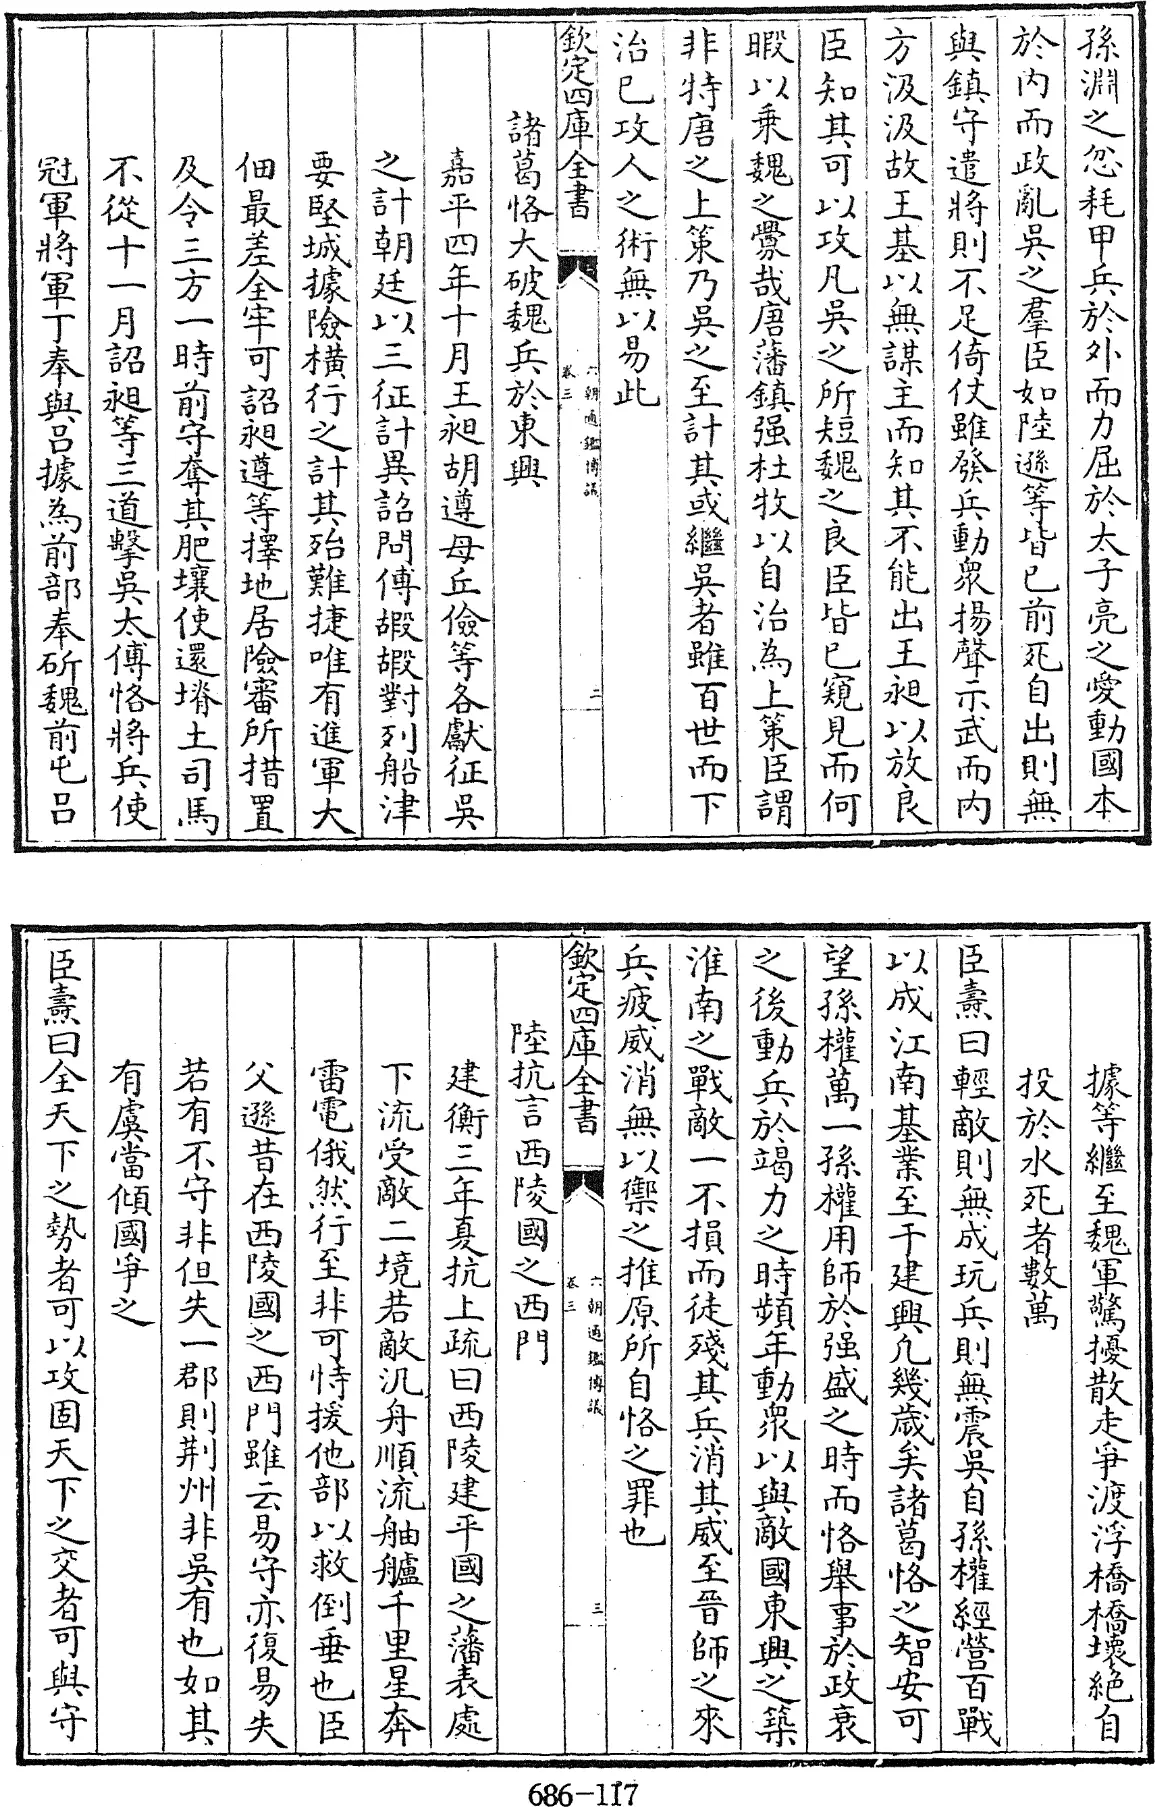 孫淵之忿耗甲兵於外而力屈於太子亮之愛動國本
於内而政亂吳之羣臣如陸遜等皆已前死自出則無
與鎮守遣將則不足倚仗雖發兵動衆揚聲示武而内
方汲汲故王基以無謀主而知其不能出王昶以放良
臣知其可以攻凡吳之所短魏之良臣皆已窺見而何
暇以乗魏之釁哉唐藩鎮强杜牧以自治為上策臣謂
非特唐之上策乃吳之至計其或繼吳者雖百世而下
治已攻人之術無以易此
欽定四庫全書
六朝通鑑博議
卷三
二
諸葛恪大破魏兵於東興
嘉平四年十月王昶胡遵毋丘儉等各獻征吳
之計朝廷以三征計異詔問傅嘏嘏對列船津
要堅城據險横行之計其殆難捷唯有進軍大
佃最差全牢可詔昶遵等擇地居險審所措置
及令三方一時前守奪其肥壤使還塉土司馬
不從十一月詔昶等三道擊吳太傅恪將兵使
冠軍將軍丁奉與呂據為前部奉斫魏前屯呂
據等繼至魏軍驚擾散走爭渡浮橋橋壞絶自
投於水死者數萬
臣燾曰輕敵則無成玩兵則無震吳自孫權經營百戰
以成江南基業至于建興凢幾歲矣諸葛恪之智安可
望孫權萬一孫權用師於强盛之時而恪舉事於政衰
之後動兵於竭力之時頻年動衆以與敵國東興之築
淮南之戰敵一不損而徒殘其兵消其威至晉師之來
兵疲威消無以禦之推原所自恪之罪也
欽定四庫全書
六朝通鑑博議
卷三
三
陸抗言西陵國之西門
建衡三年夏抗上疏曰西陵建平國之藩表處
下流受敵二境若敵汎舟順流舳艫千里星奔
雷電俄然行至非可恃援他部以救倒垂也臣
父遜昔在西陵國之西門雖云易守亦復易失
若有不守非但失一郡則荆州非吳有也如其
有虞當傾國爭之
臣燾曰全天下之勢者可以攻固天下之交者可與守
686-117